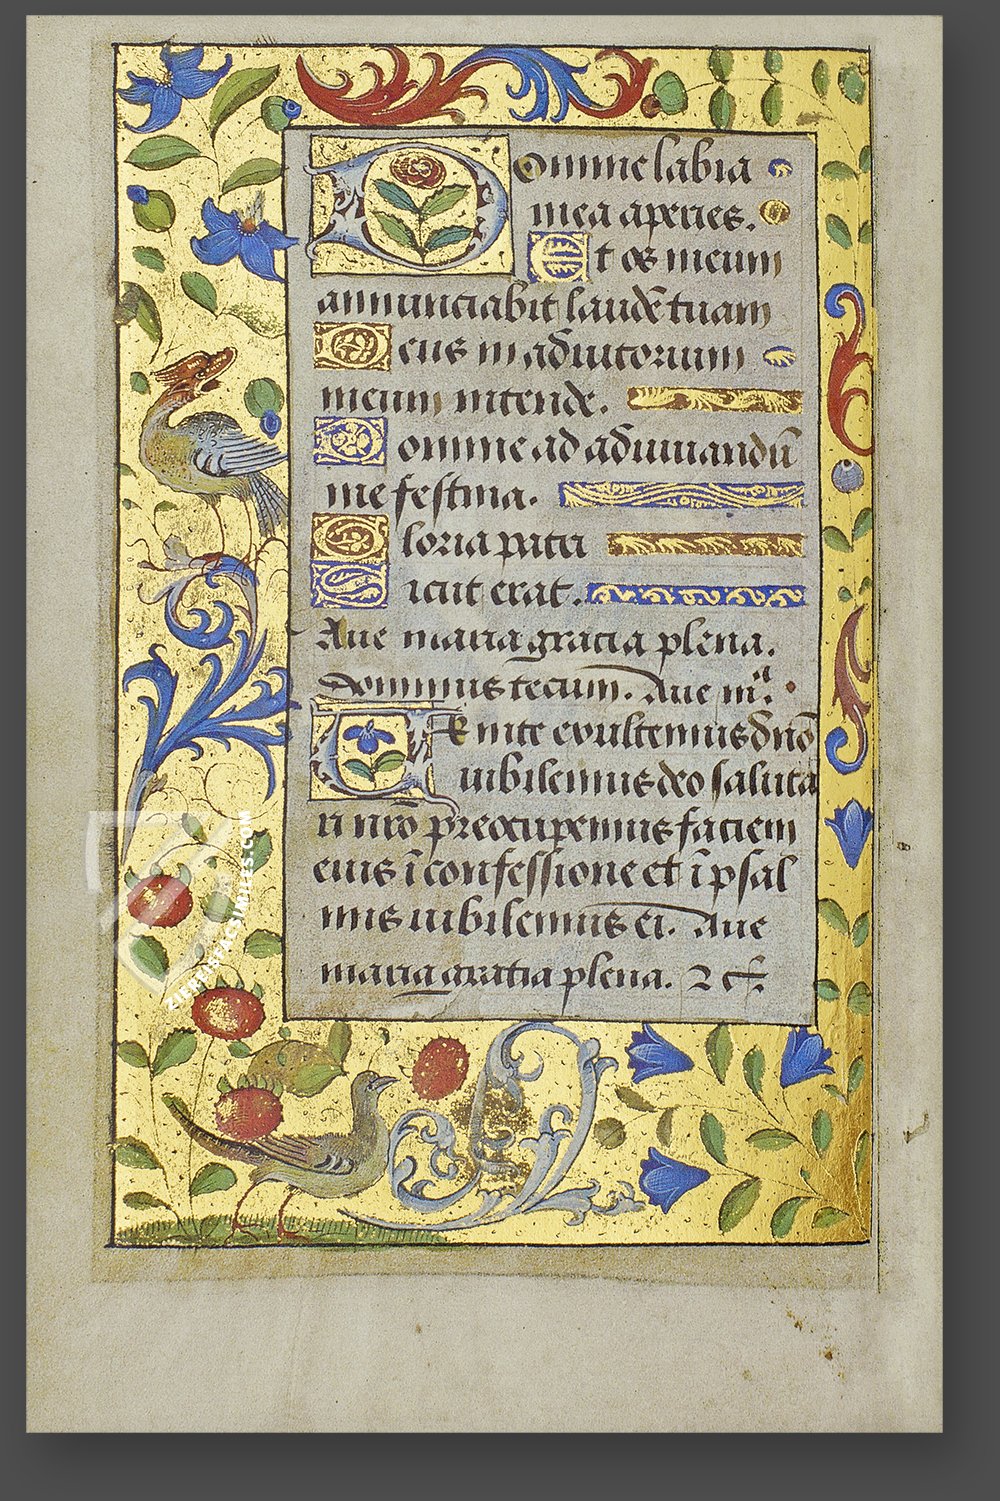 Domine labia
mea aperies.
Et os meum
annunciabit laudē tuam
Deus in adiutorium
meum intende.
Domine ad adiuuandū
me festina.
Gloria patri
Sicut erat.
Aue maria gracia plena.
Dominus tecum. Aue mᵃ.
Uenite exultemus dn̄o
iubilemus deo saluta
ri nr̄o preocupemus faciem
eius ī confessione et ī psal
mis iubilemus ei. Aue
maria gratia plena.
ZIEREISFACSIMILES.COM